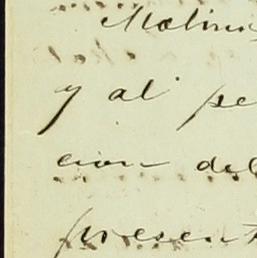 Molin
y al pe
cion del
present